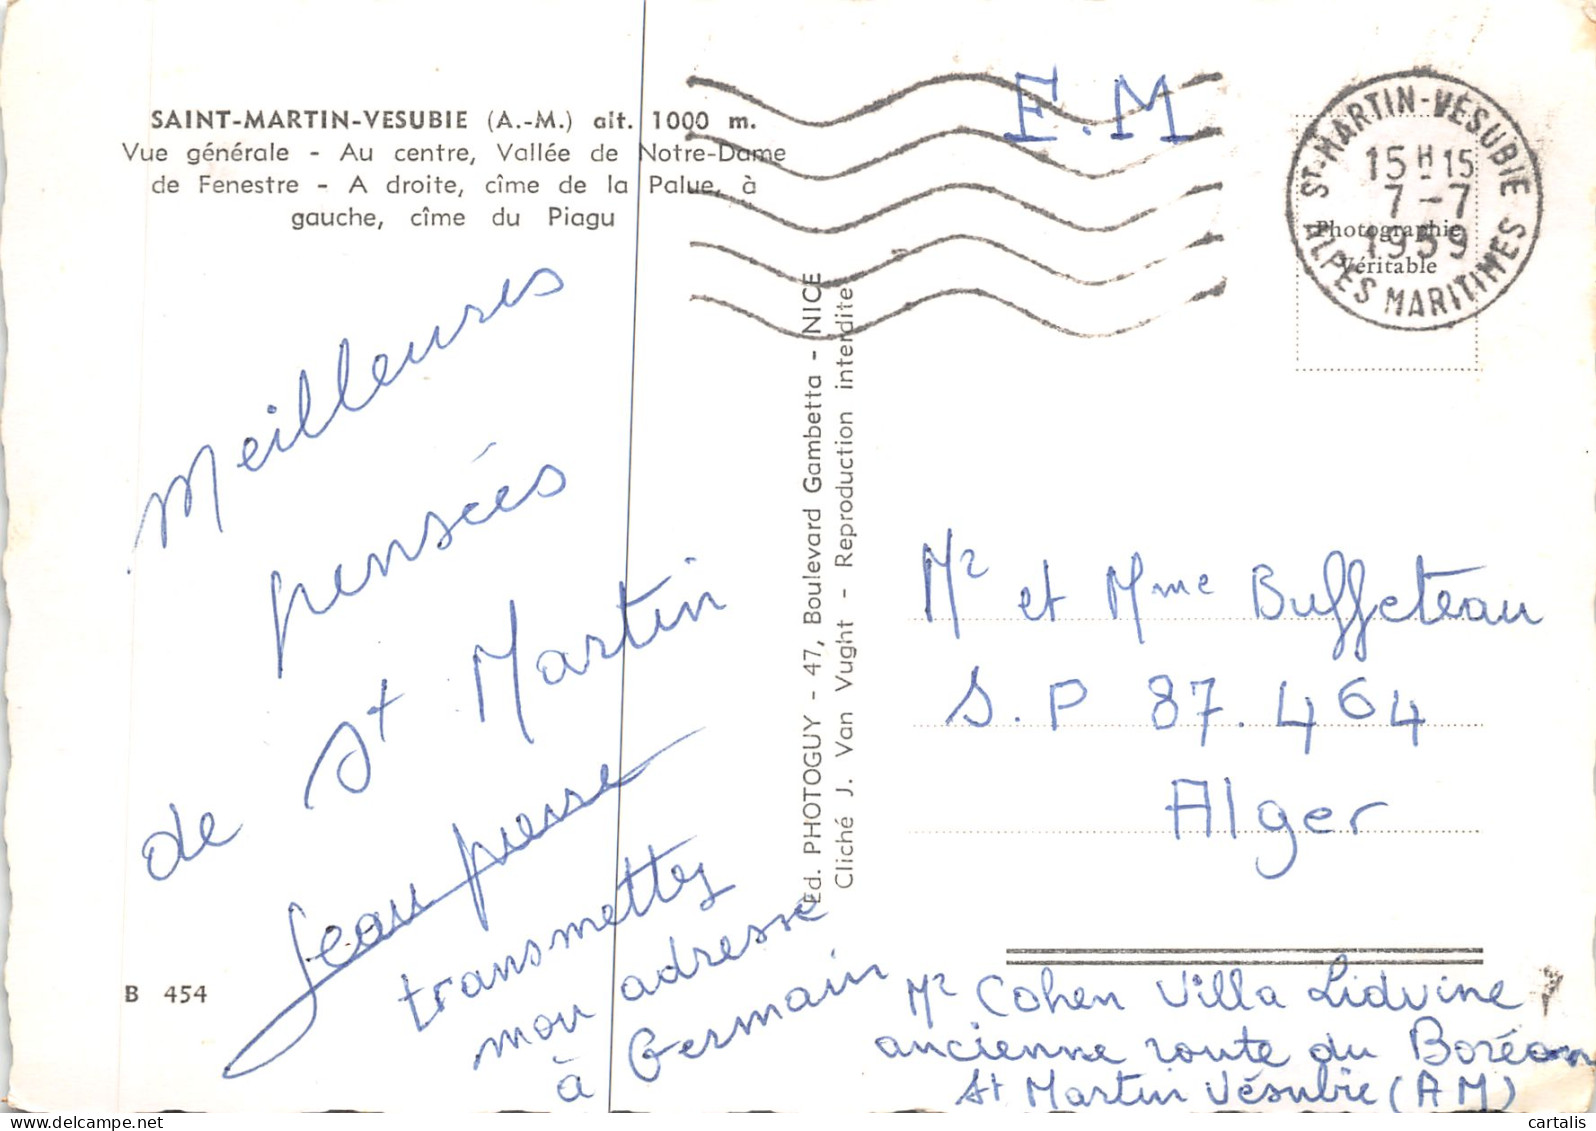 SAINT-MARTIN-VESUBIE (A.-M.) alt. 1000 m.
Vue générale - Au centre, Vallée de Notre-Dame
de Fenestre - A droite, cîme de la Palue, à
gauche, cîme du Piagu
F.M
ST-MARTIN-VÉSUBIE
15H15
7-7
1959
ALPES MARITIMES
Photographie
Véritable
Meilleures
pensées
de St Martin
Jean pierre
transmettez
mon adresse
à Germain
B 454
Ed. PHOTOGUY - 47, Boulevard Gambetta - NICE
Cliché J. Van Vught - Reproduction interdite
Mr et Mme Buffeteau
S.P 87.464
Alger
Mr Cohen Villa Lidvine
ancienne route du Boréon
St Martin Vésubie (AM)
cartalis
www.delcampe.net